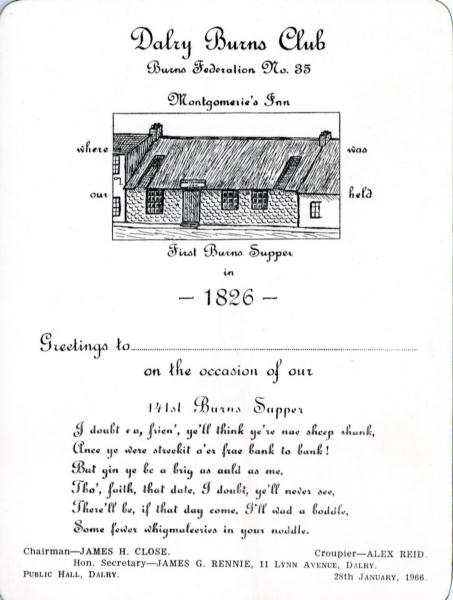 Dalry Burns Club
Burns Federation No. 35
Montgomerie's Inn
where was
our held
First Burns Supper
in
— 1826 —
Greetings to
on the occasion of our
141st Burns Supper
I doubt na, frien', ye'll think ye're nae sheep shank,
Ance ye were streekit o'er frae bank to bank!
But gin ye be a brig as auld as me,
Tho', faith, that date, I doubt, ye'll never see,
There'll be, if that day come, I'll wad a boddle,
Some fewer whigmaleeries in your noddle.
Chairman—JAMES H. CLOSE. Croupier—ALEX REID.
Hon. Secretary—JAMES G. RENNIE, 11 LYNN AVENUE, DALRY.
PUBLIC HALL, DALRY. 28TH JANUARY, 1966.